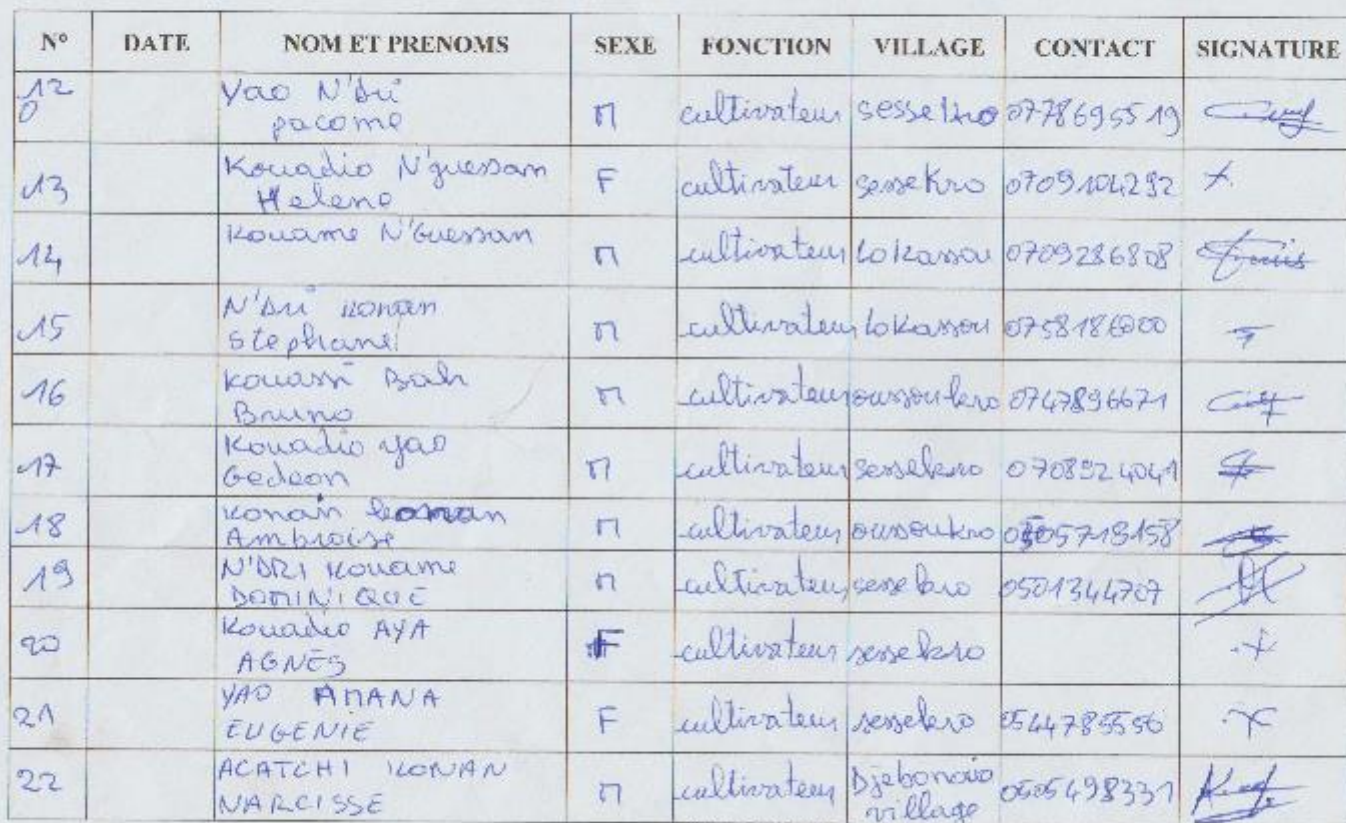 N° DATE NOM ET PRENOMS SEXE FONCTION VILLAGE CONTACT SIGNATURE
12 Yao N'Dri pacome M cultivateur sessekro 0778695519
13 Kouadio N'guessan Helene F cultivateur sessekro 0709104292 x.
14 Kouame N'Guessan M cultivateur Lokassou 0709286808
15 N'Dri Konan Stephane M cultivateur Lokassou 0758186000
16 Kouassi Bah Bruno M cultivateur oussoukro 0747896671
17 Kouadio yao Gedeon M cultivateur sessekro 0708924041
18 Konan Konan Ambroise M cultivateur oussoukro
19 N'DRI Kouame DOMINIQUE M cultivateur sessekro 0501344707
20 Kouadio AYA AGNES F cultivateur sessekro x
21 YAO AMANA EUGENIE F cultivateur sessekro 0544785556 x
22 ACATCHI KONAN NARCISSE M cultivateur Djebonoua village 0505498331